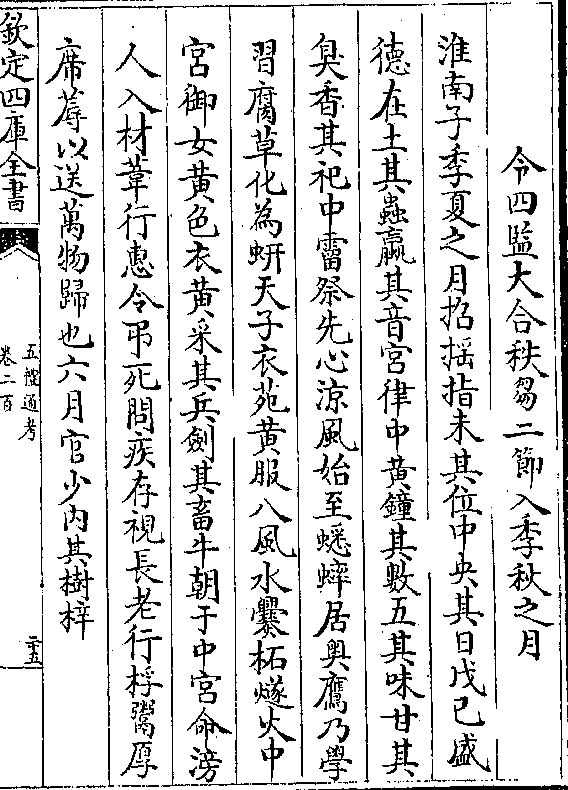 令四監大合秩芻二節入季秋之月
淮南子季夏之月招摇指未其位中央其日戊己盛
德在土其蟲蠃其音宮律中黃鐘其數五其味甘其
臭香其祀中霤祭先心涼風始至蟋蟀居奥鷹乃學
習腐草化為蚈天子衣苑黃服八風水爨柘燧火中
宮御女黃色衣黃采其兵劍其畜牛朝于中宮命滂
人入材葦行惠令弔死問疾存視長老行桴鬻厚
席蓐以送萬物歸也六月官少内其樹梓
欽定四庫全書
五禮通考
卷二百
二十五